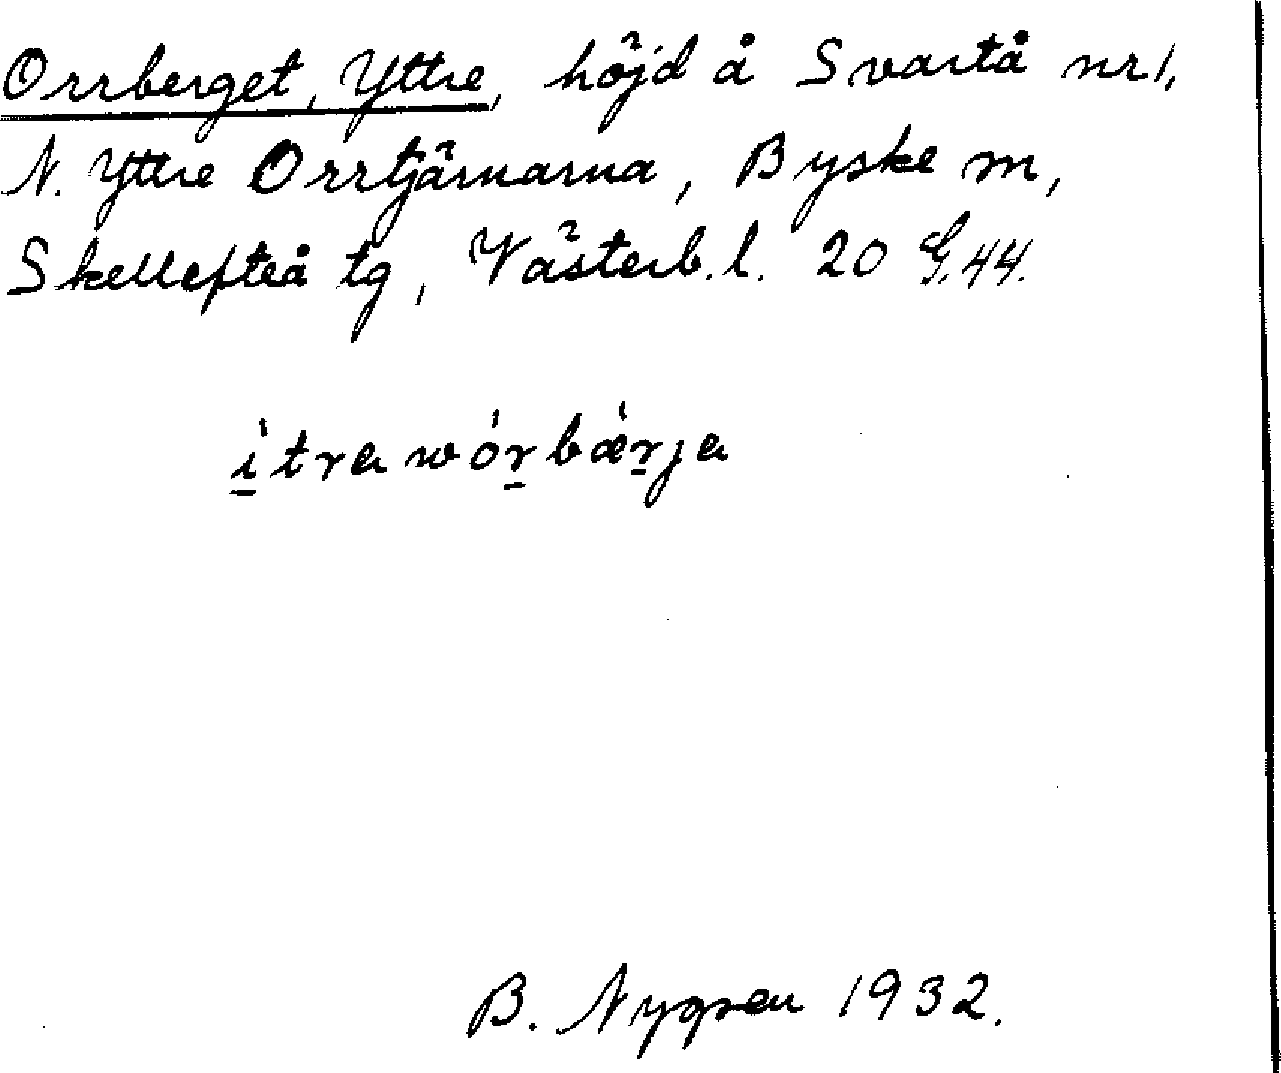 Orrberget, Yttre, höjd å Svartå nr 1,
N. Yttre Orrtjärnarna, Byske sn,
Skellefteå tg, Västerb. l. 20 G. 44.
ì̱trawór̠bǽr̠ja
B. Nygren 1932.